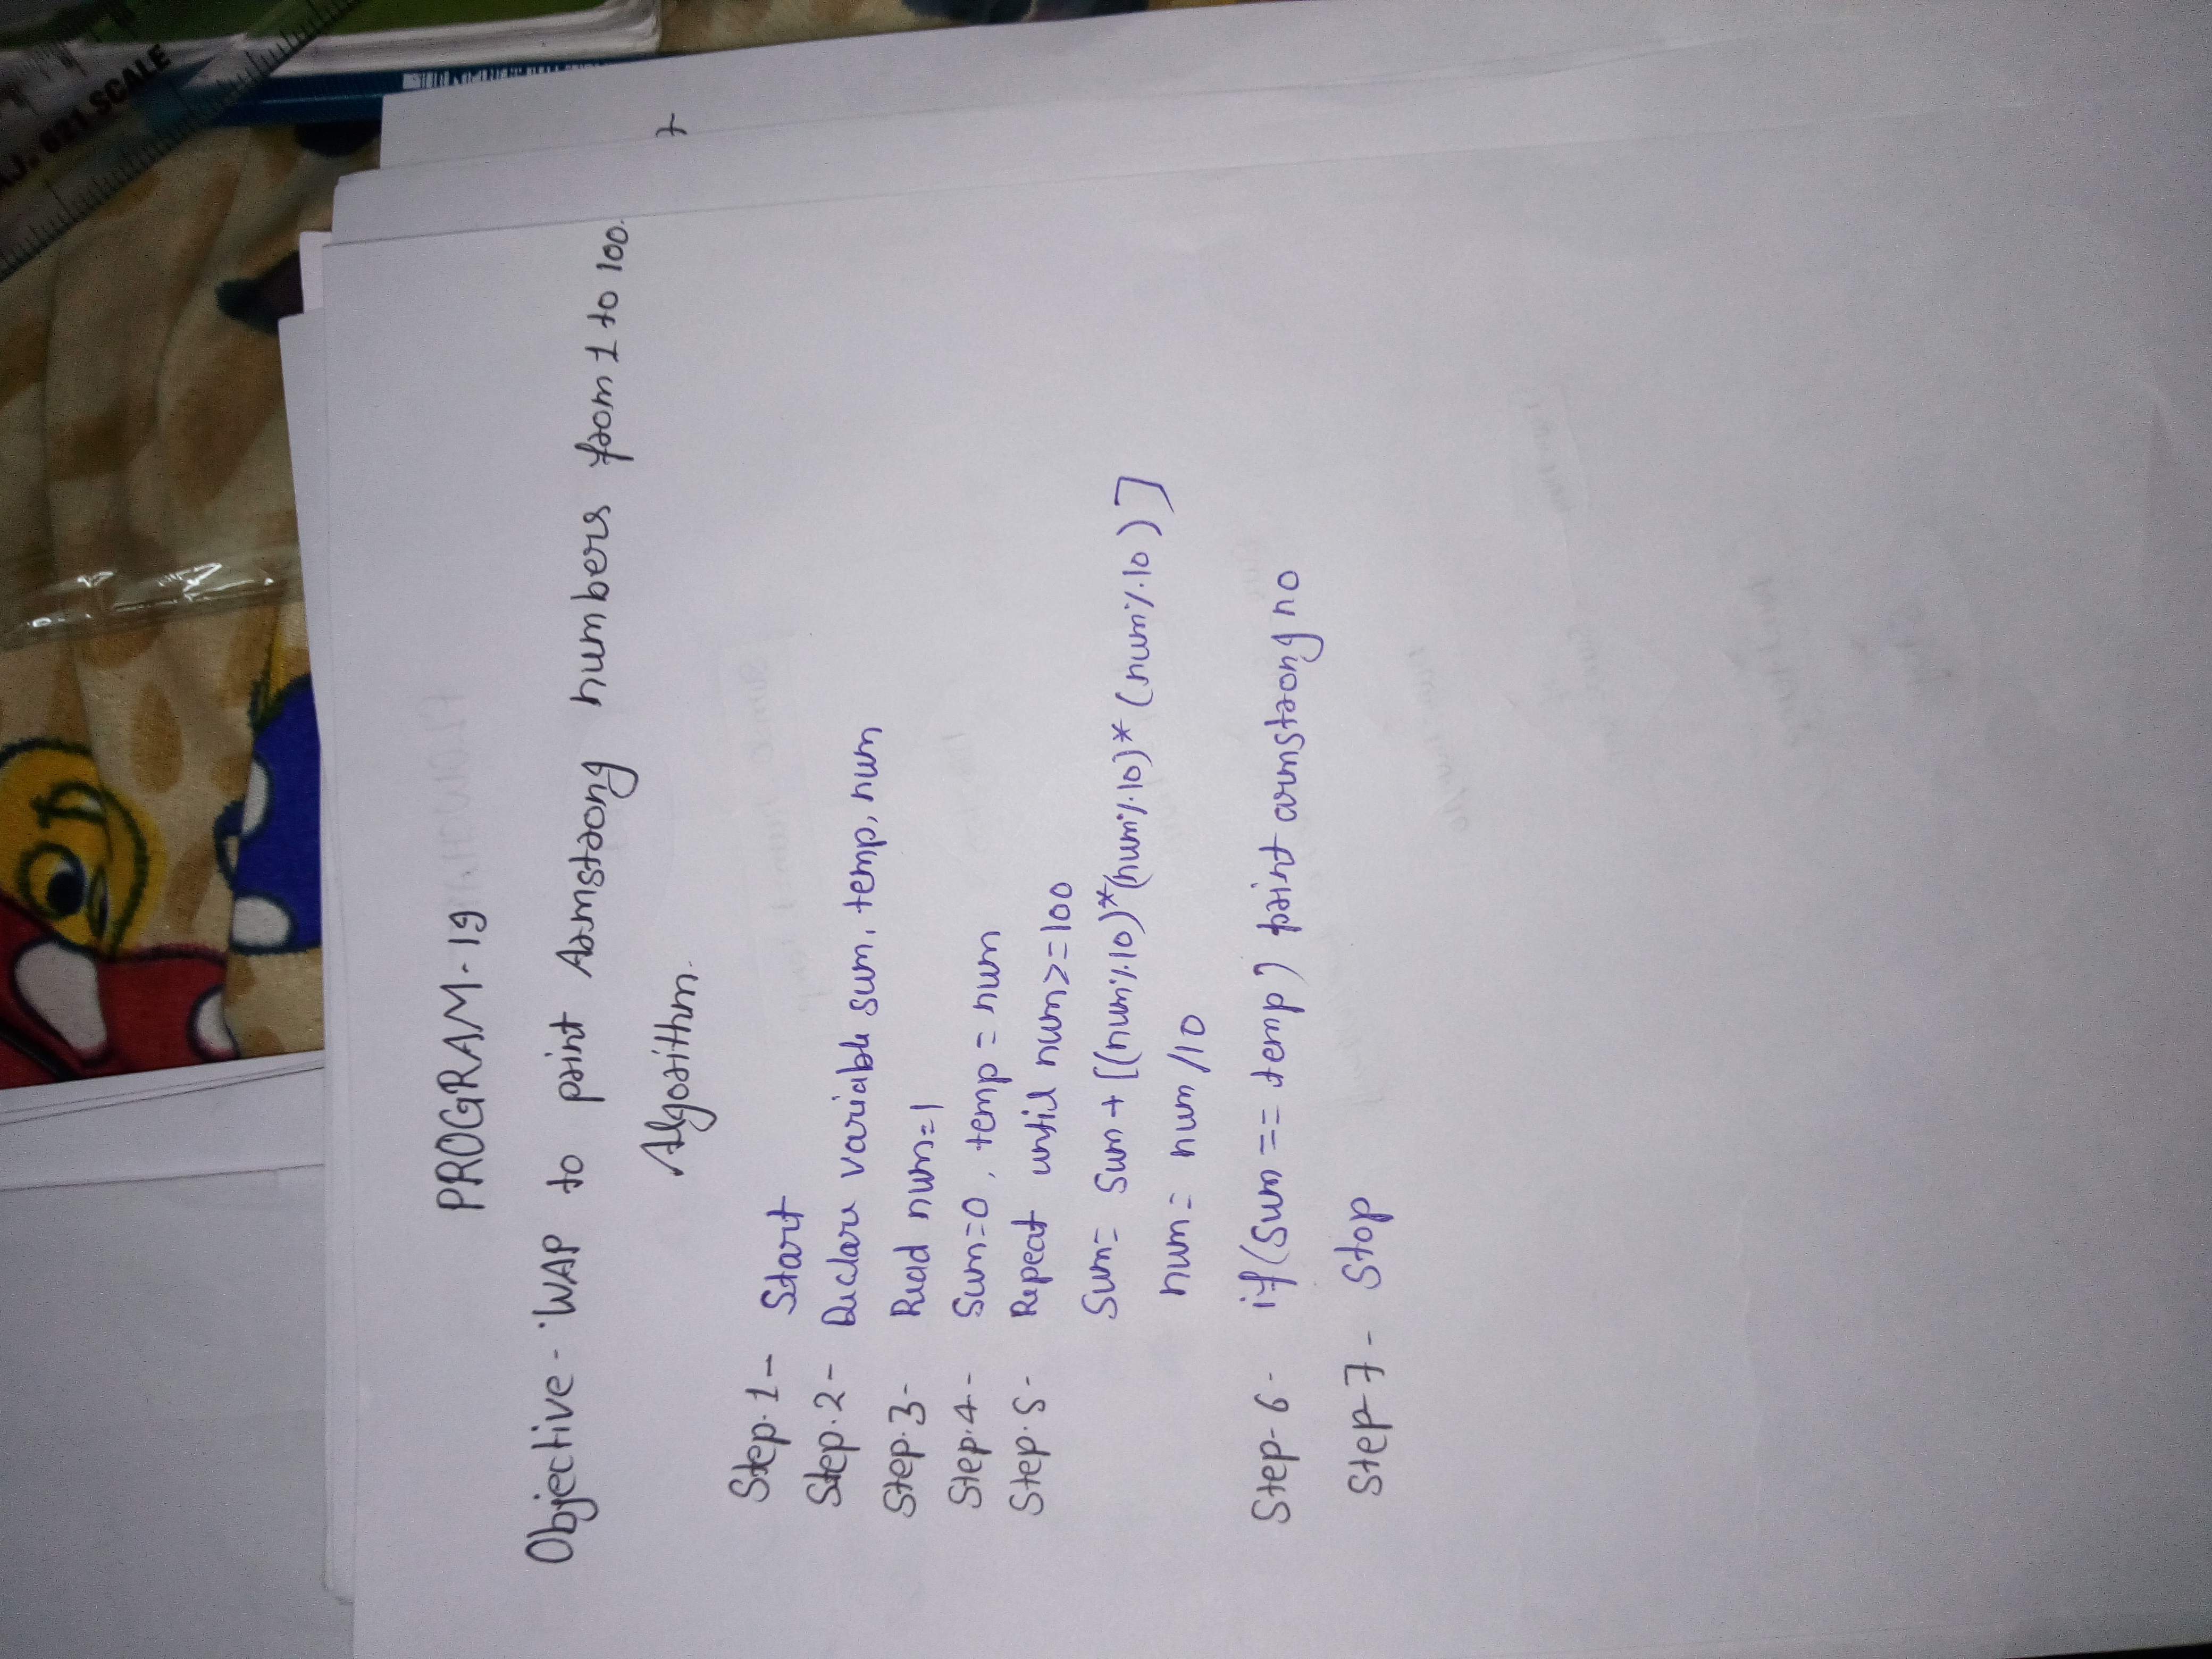 PROGRAM-19
Objective - WAP to print Armstrong numbers from 1 to 100.
Algorithm.
Step.1- Start
Step.2- Declare variable sum, temp, num
Step.3- Read num=1
Step.4- Sum=0, temp = num
Step.5- Repeat until num>=100
Sum= Sum+[(num%10)*(num%10)*(num%10)]
num= num/10
Step-6- if(Sum == temp) print armstrong no
Step-7- Stop
AJ. 621 SCALE